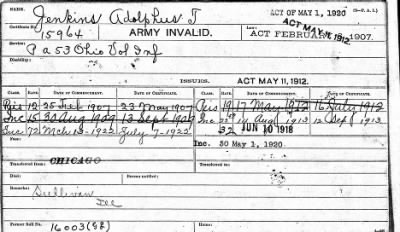 Name: Jenkins Adolphus T ACT OF MAY 1, 1920
Certificate No. 15964 ARMY INVALID. LAW ACT FEBRUARY 1907. ACT MAY 11, 1912.
Service: P a 53 Ohio Vol Inf
Disability:
ISSUES. ACT MAY 11, 1912.
CLASS. RATE. DATE OF COMMENCEMENT. DATE OF CERTIFICATE. CLASS. RATE. DATE OF COMMENCEMENT. DATE OF CERTIFICATE.
12 25 Feb 1907 23 May 1907 19 17 May 1912 16 July 1912
Inc 15 30 Aug 1909 13 Sept 1909 Inc 1913 12 Sept 1913
Inc 72 Mch 13-1922 July 7-1922 32 JUN 10 1918
Inc. 50 May 1, 1920.
Transferred from: CHICAGO
Transferred to:
Remarks: Sullivan
Former Roll No. 16003